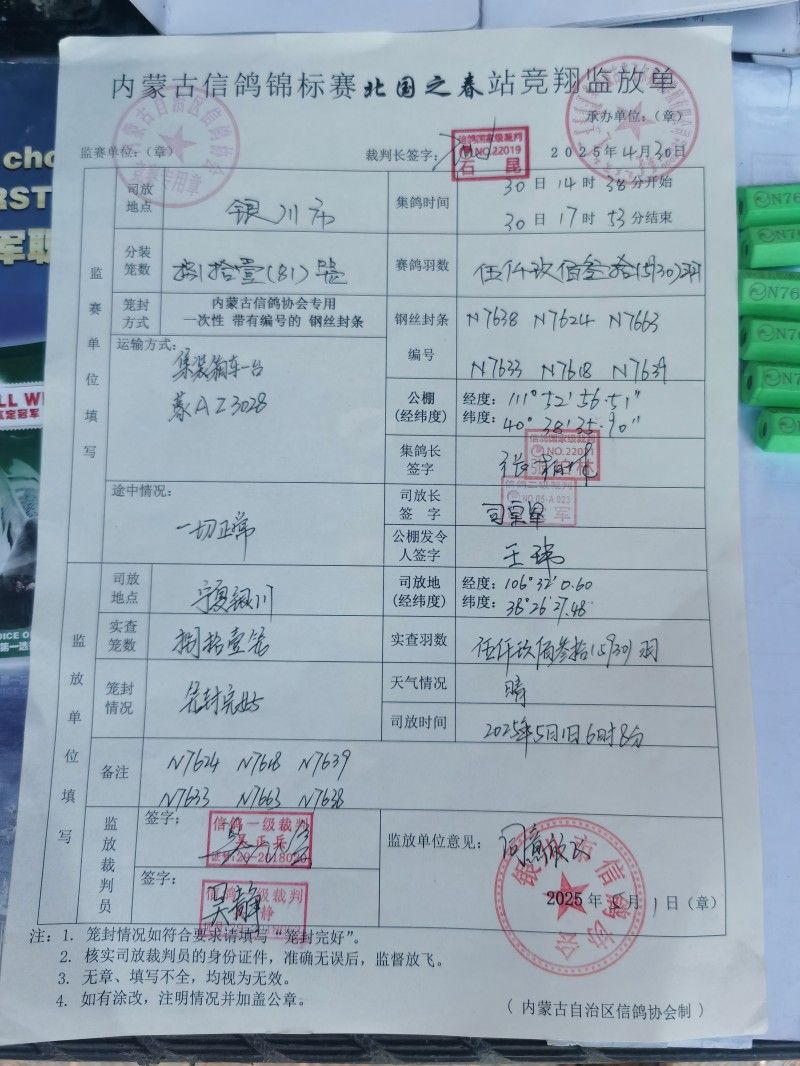 内蒙古信鸽锦标赛北国之春站竞翔监放单
承办单位：（章）
监赛单位：（章）
裁判长签字：
信鸽国家级裁判
NO.22019
石 昆
2025年4月30日
监赛单位填写
司放地点
银川市
集鸽时间
30日14时38分开始
30日17时53分结束
分装笼数
捌拾壹(81)笼
赛鸽羽数
伍仟玖佰叁拾(5930)羽
笼封方式
内蒙古信鸽协会专用
一次性 带有编号的 钢丝封条
钢丝封条编号
N7638 N7624 N7663
N7633 N7618 N7639
运输方式：
集装箱车一台
蒙AZ3028
公棚(经纬度)
经度：111°52′56.51″
纬度：40°38′35.90″
集鸽长签字
信鸽国家级裁判
NO.22021
途中情况：
一切正常
司放长签 字
NO.05-A-023
军
公棚发令人签字
王玮
监放单位填写
司放地点
宁夏银川
司放地(经纬度)
经度：106°32′0.60
纬度：38°26′27.48″
实查笼数
捌拾壹笼
实查羽数
伍仟玖佰叁拾(5930)羽
笼封情况
笼封完好
天气情况
晴
司放时间
2025年5月1日6时8分
备注
N7624 N7618 N7639
N7633 N7663 N7638
监放裁判员
签字：
信鸽一级裁判
签字：
吴静
监放单位意见：
同意放飞
2025年5月1日（章）
银川市信鸽协会
注：1. 笼封情况如符合要求请填写“笼封完好”。
2. 核实司放裁判员的身份证件，准确无误后，监督放飞。
3. 无章、填写不全，均视为无效。
4. 如有涂改，注明情况并加盖公章。
（内蒙古自治区信鸽协会制）